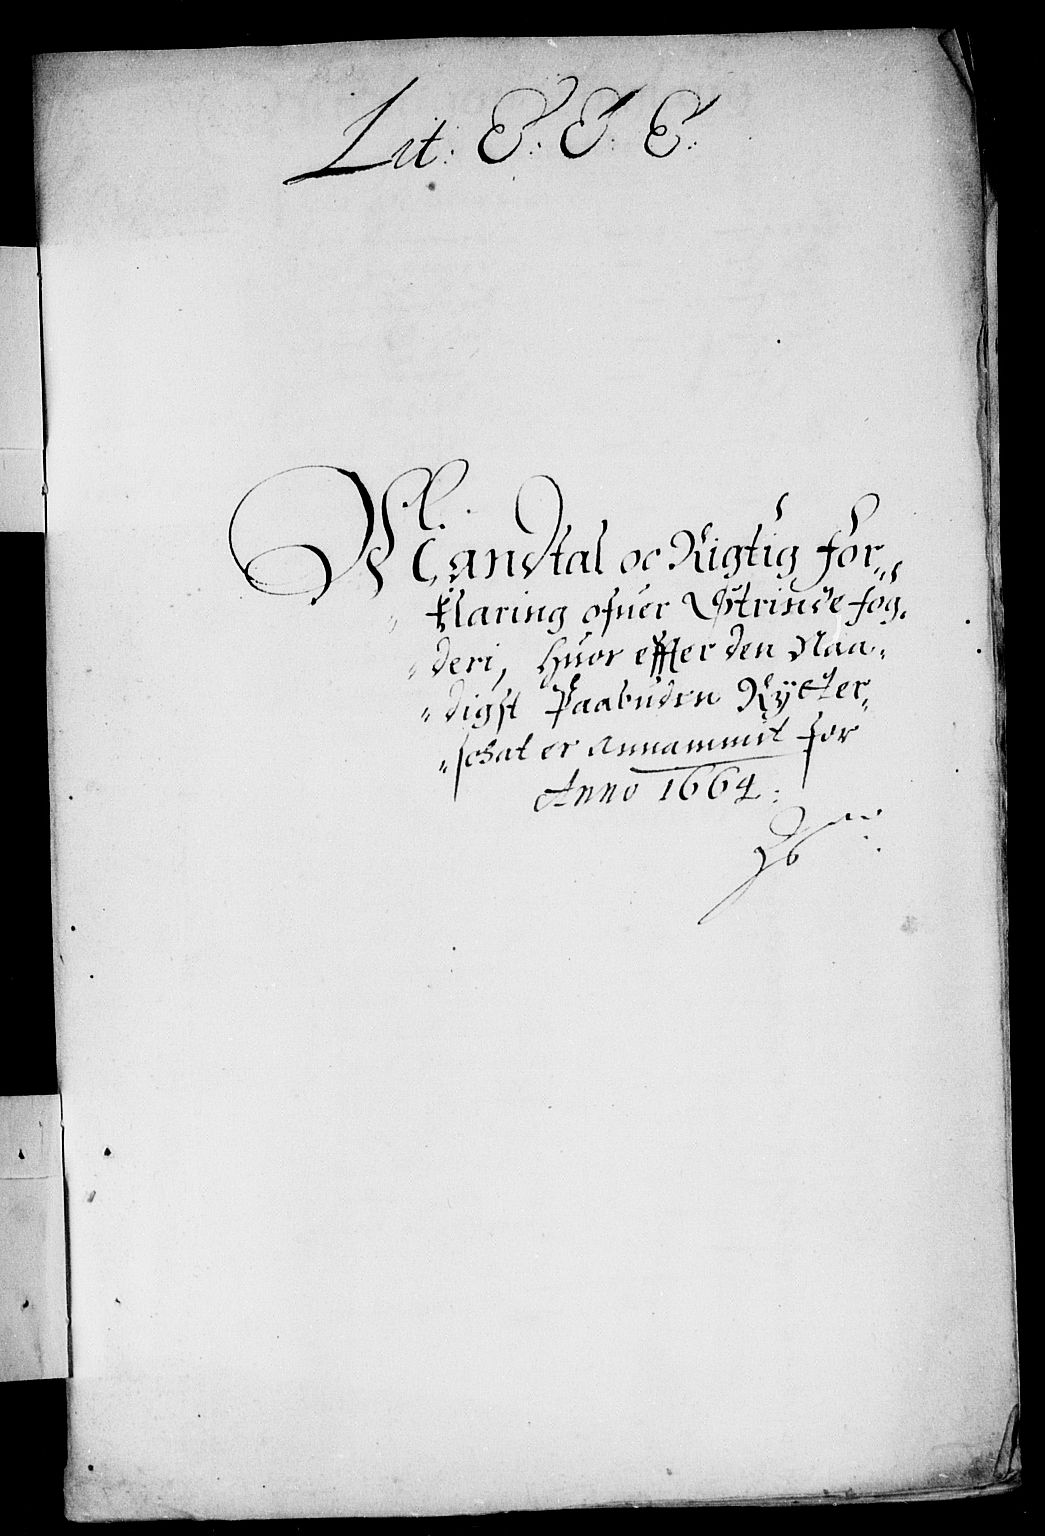 Lit: E: E: E:
Mandtal oc Rigtig for,,
,,klaring ofuer Strinde fog,
,,deri, Huor effter den Naa,,
,,digst Paabuden Rytter,,
,,schat er Annammit for
Anno 1664: